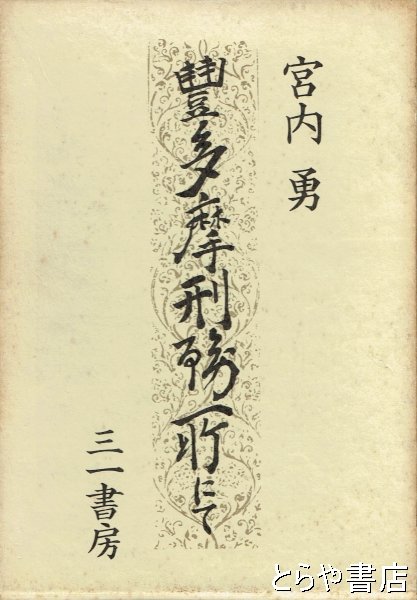 宮内 勇
豐多摩刑務所にて
三一書房
とらや書店